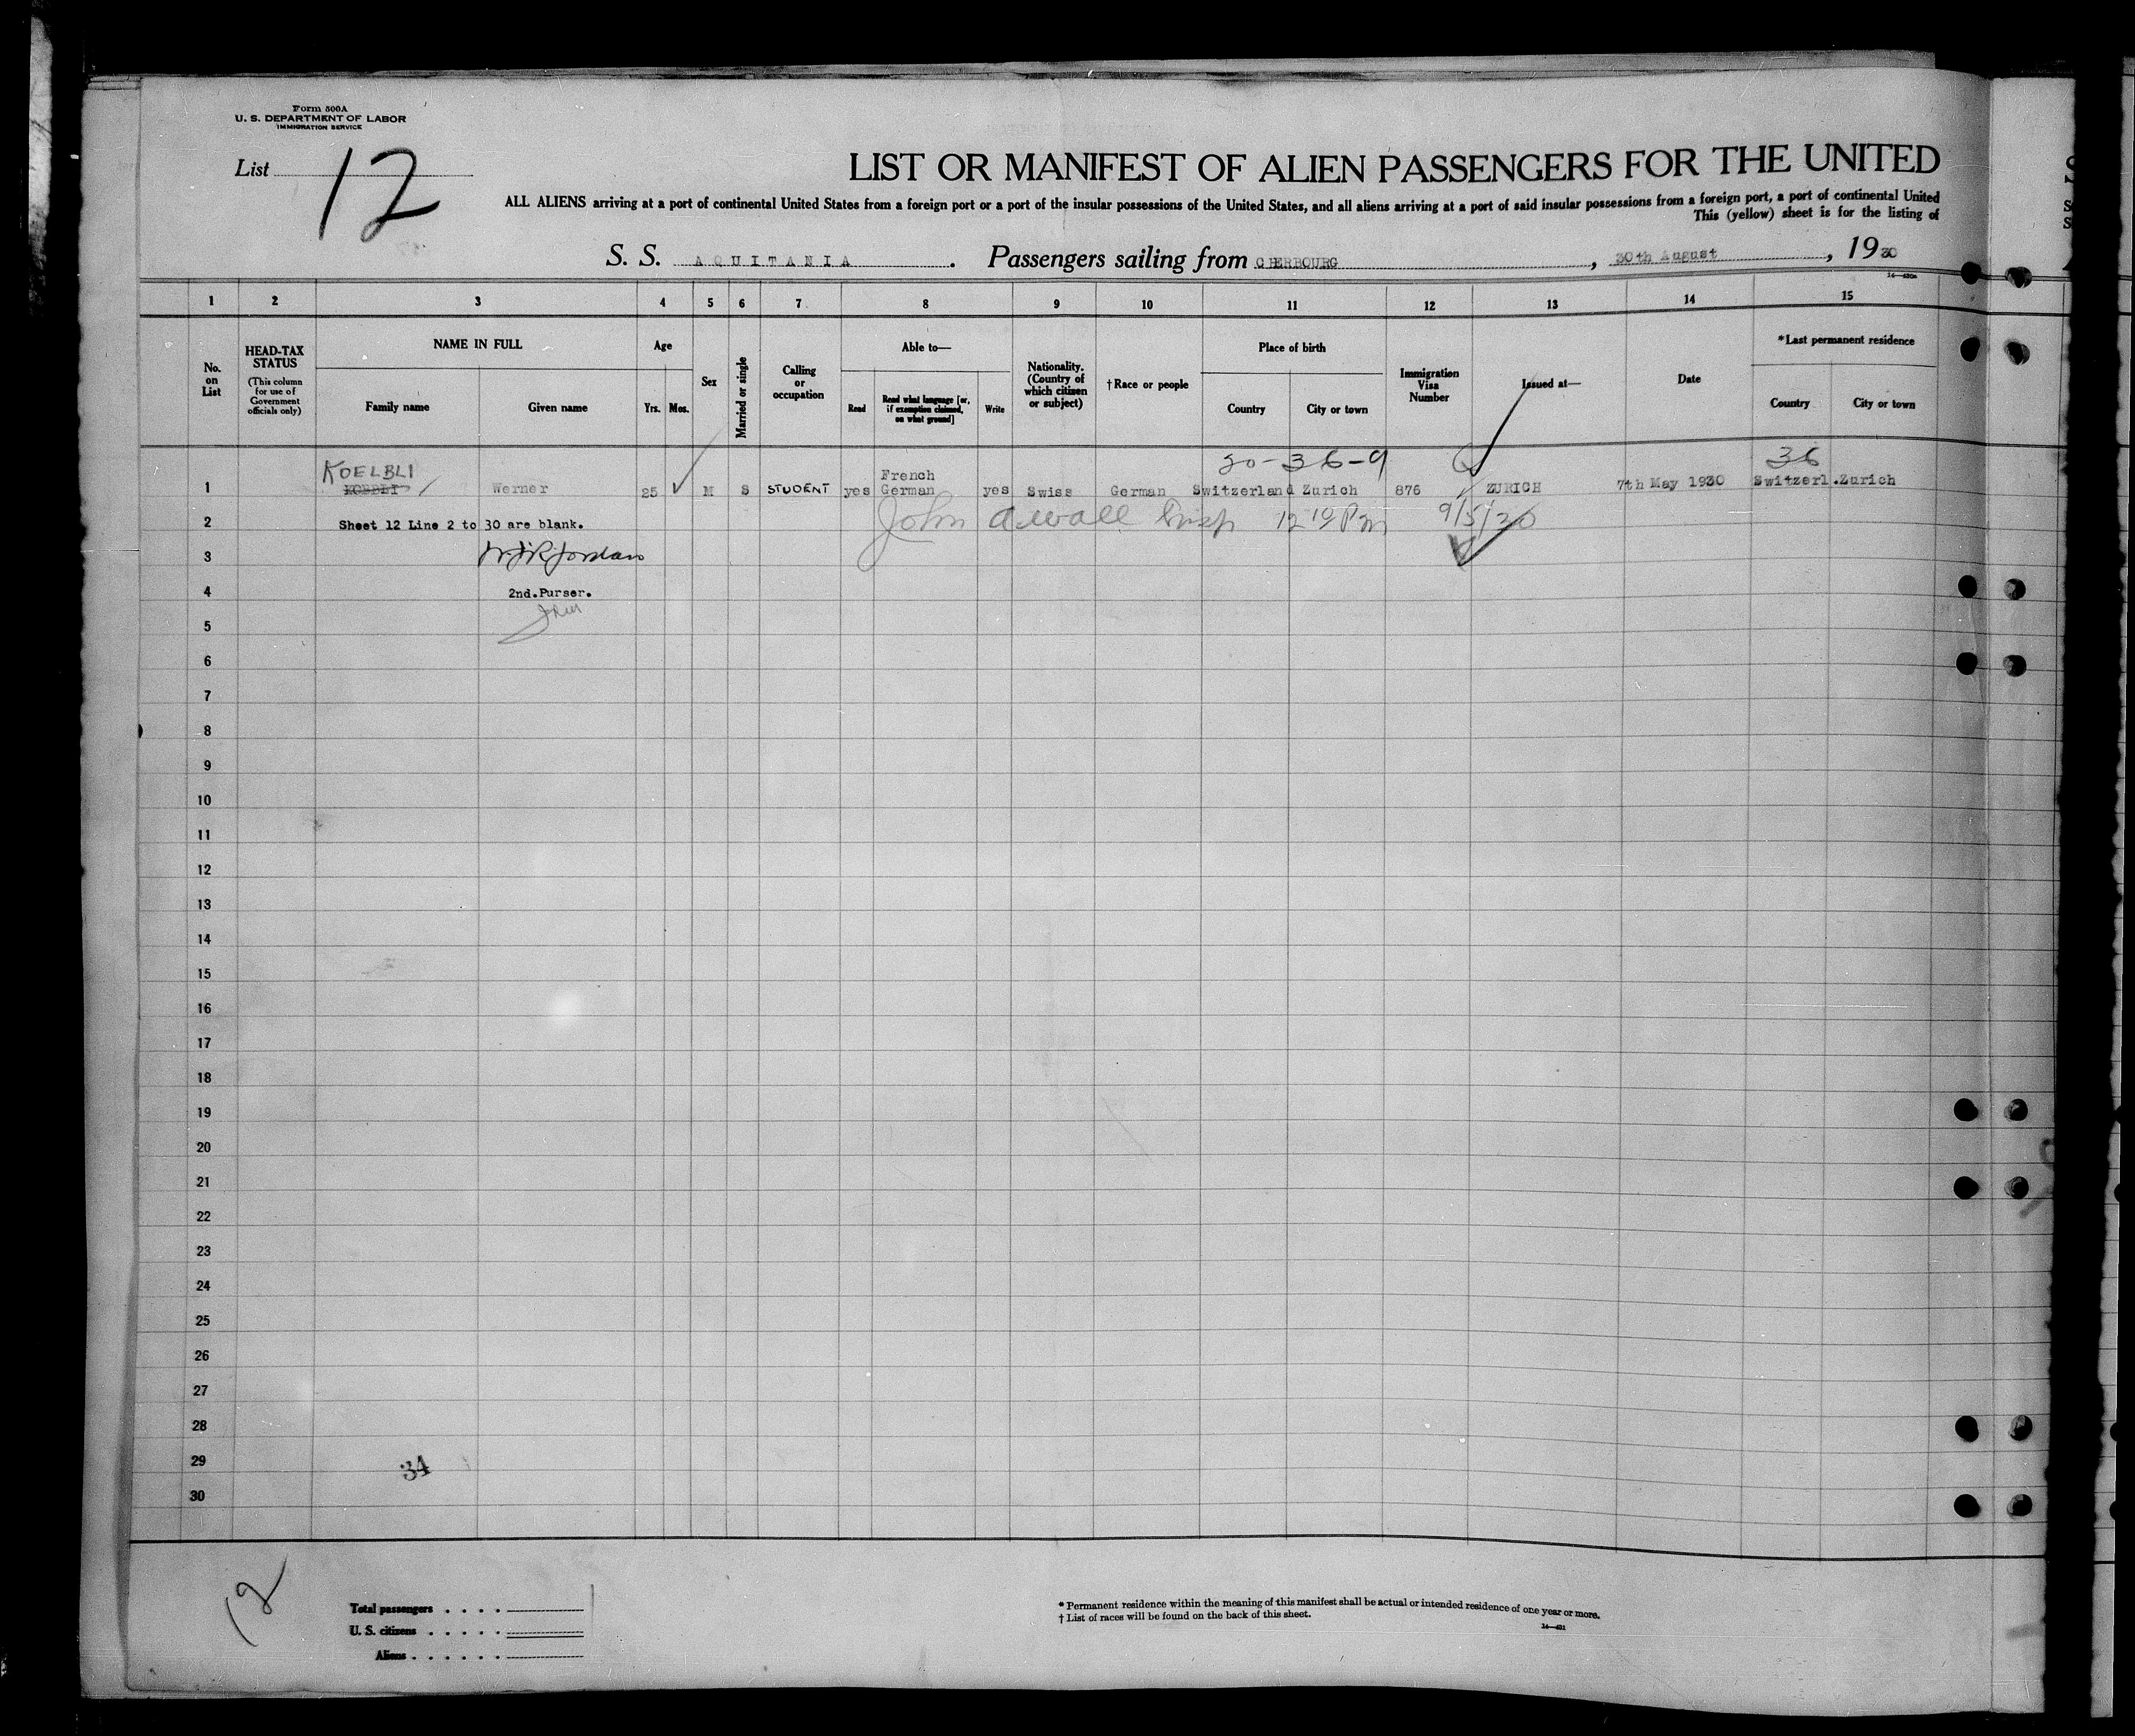 Form 500A
U. S. DEPARTMENT OF LABOR
IMMIGRATION SERVICE
List 12
LIST OR MANIFEST OF ALIEN PASSENGERS FOR THE UNITED
ALL ALIENS arriving at a port of continental United States from a foreign port or a port of the insular possessions of the United States, and all aliens arriving at a port of said insular possessions from a foreign port, a port of continental United
This (yellow) sheet is for the listing of
S. S. AQUITANIA. Passengers sailing from CHERBOURG, 30th August, 1930
1 2 3 4 5 6 7 8 9 10 11 12 13 14 15
No. on List
HEAD-TAX STATUS
(This column for use of Government officials only)
NAME IN FULL
Family name Given name
Age
Yrs. Mos.
Sex
Married or single
Calling or occupation
Able to—
Read
Read what language [or, if exemption claimed, on what ground]
Write
Nationality. (Country of which citizen or subject)
†Race or people
Place of birth
Country City or town
Immigration Visa Number
Issued at—
Date
*Last permanent residence
Country City or town
KOELBLI 20-36-9 36
1 Werner 25 M S STUDENT yes French German yes Swiss German Switzerland Zurich 876 ZURICH 7th May 1930 Switzerl.Zurich
2 Sheet 12 Line 2 to 30 are blank. John Insp 12 10 Pm 9/5/30
3
4 2nd.Purser.
5
6
7
8
9
10
11
12
13
14
15
16
17
18
19
20
21
22
23
24
25
26
27
28
29 34
30
12
Total passengers
U. S. citizens
Aliens
* Permanent residence within the meaning of this manifest shall be actual or intended residence of one year or more.
† List of races will be found on the back of this sheet.